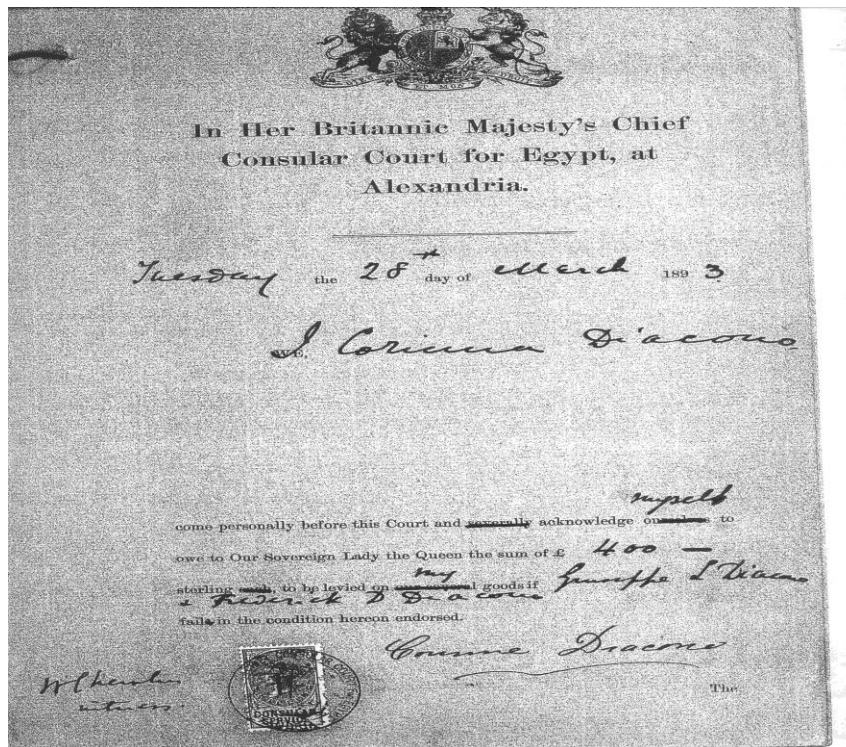 ET MON
In Her Britannic Majesty's Chief
Consular Court for Egypt, at
Alexandria.
Tuesday the 28th day of March 1893
WE, I Corinna Diacono
myself
come personally before this Court and severally acknowledge ourselves to
owe to Our Sovereign Lady the Queen the sum of £ 400 —
my
sterling each, to be levied on our several goods if Giuseppe L Diacono
& Frederick D Diacono
fails in the condition hereon endorsed.
Corinne Diacono
witness
CONSULAR
SERVICE
The